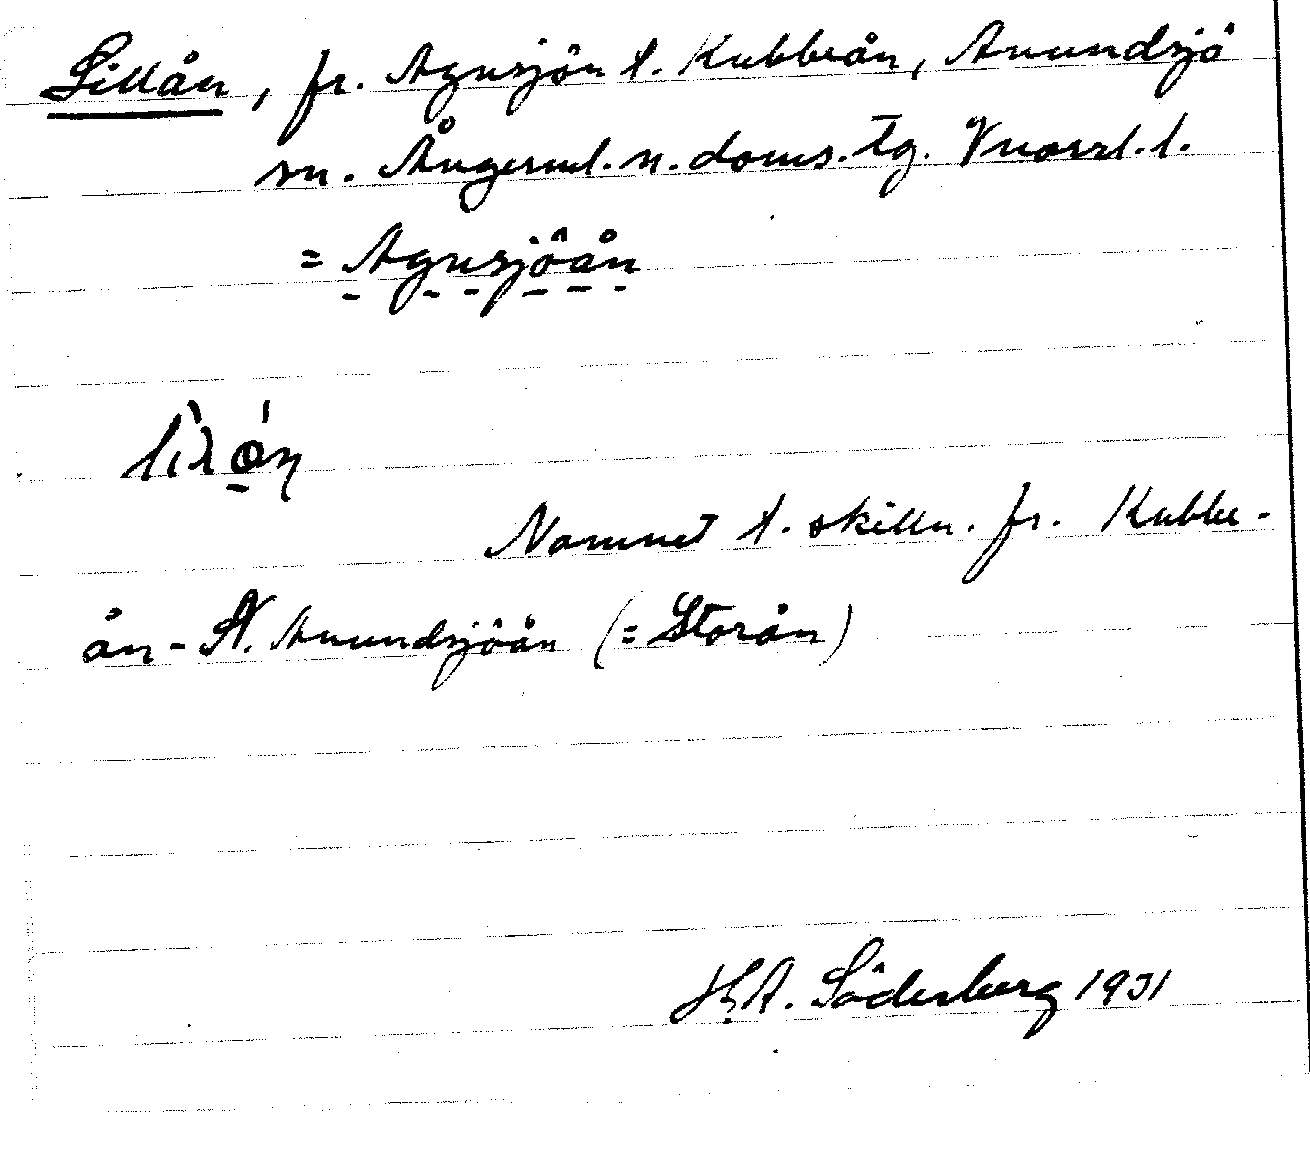 Lillån, fr. Agnsjön t. Kubbeån, Anundsjö
sn. Ångerml. n. doms. tg. Vnorrl. l.
= Agnsjöån
Namnet t. skilln. fr. Kubbe-
ån - N. Anundsjöån (= Storån)
H.A. Söderberg 1931